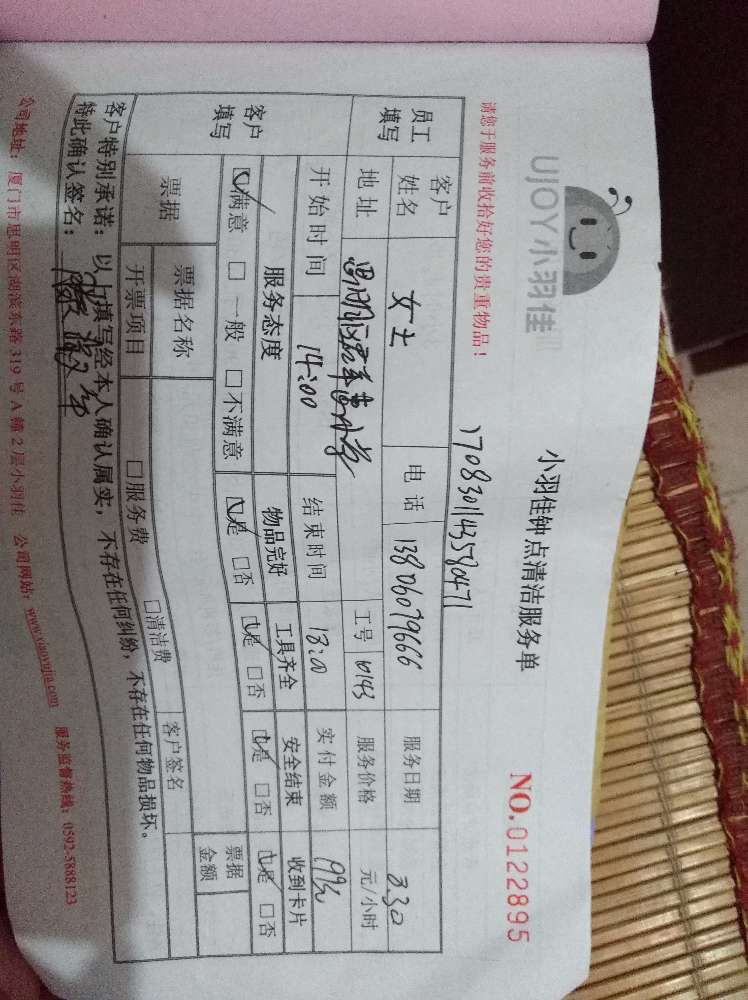 UJOY小羽佳
小羽佳钟点清洁服务单
NO.0122895
请您于服务前收拾好您的贵重物品！
1708301143580471
员工填写 客户姓名 女士 电话 13806079666 服务日期 8.30
地址 思明区 工号 10143 服务价格 元/小时
客户填写 开始时间 14:00 结束时间 18:00 实付金额
服务态度 物品完好 工具齐全 安全结束 收到卡片
☑满意 □一般 □不满意 ☑是 □否 ☑是 □否 ☑是 □否 ☑是 □否
票据 票据名称 客户签名 票据金额
开票项目 □服务费 □清洁费
客户特别承诺：以上填写经本人确认属实，不存在任何纠纷，不存在任何物品损坏。
特此确认签名：
公司地址：厦门市思明区湖滨东路319号A幢2层小羽佳 公司网站：www.xiaoyujia.com 服务监督热线：0592-5888123